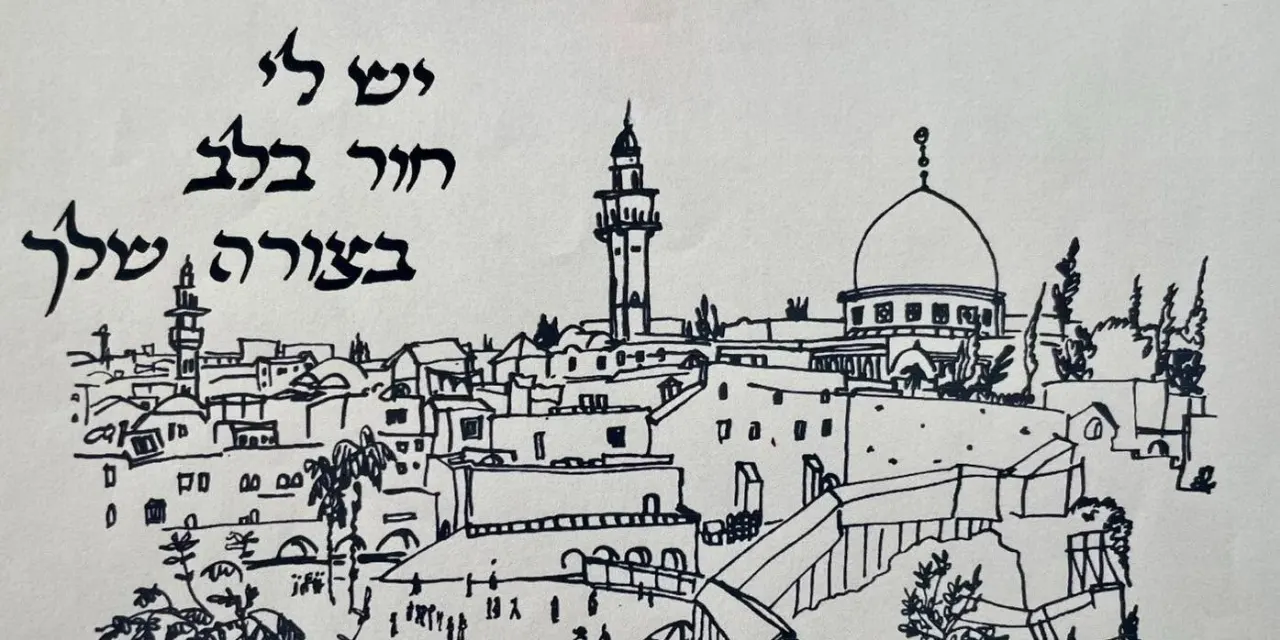 יש לי
חור בלב
בצורה שלך